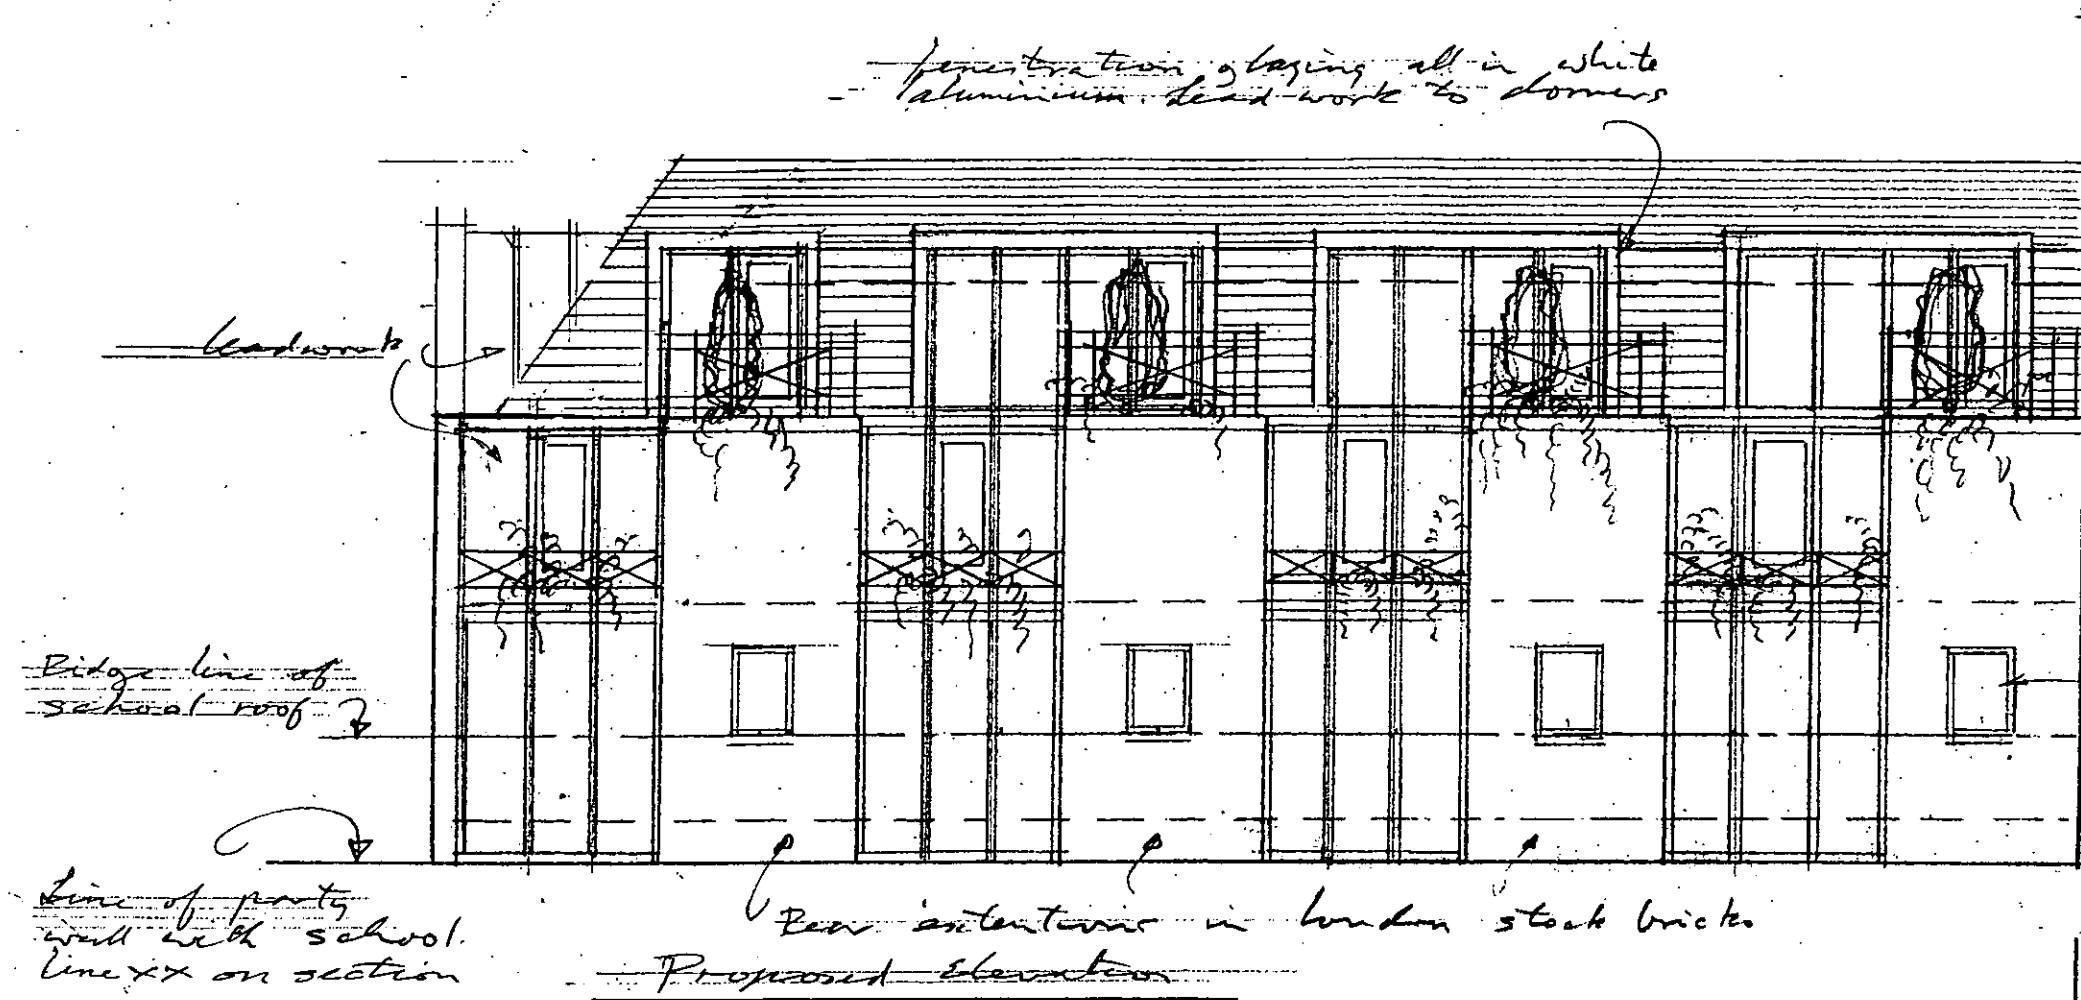 fenestration glazing all in white
aluminium. Lead work to dormers
leadwork
Ridge line of
school roof
Line of party
wall with school.
line xx on section
Rear extentions in london stock bricks
Proposed Elevation